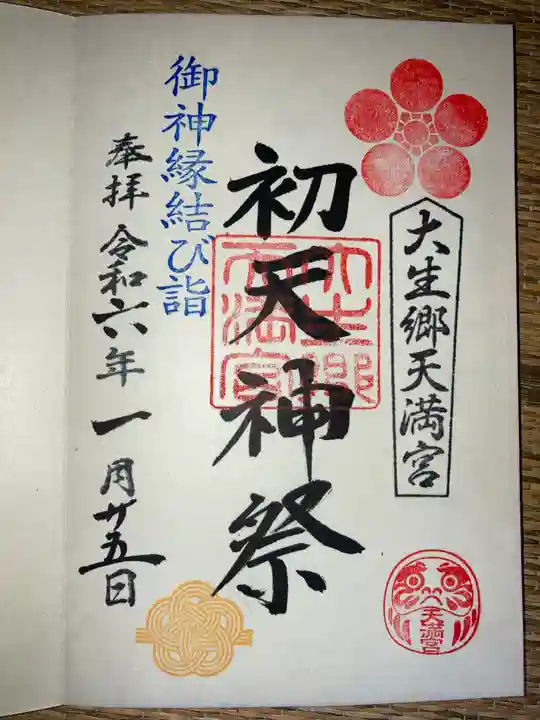 大生郷天満宮
初天神祭
大生郷
天満宮
御神縁結び詣
奉拝 令和六年 一月廿五日
天満宮